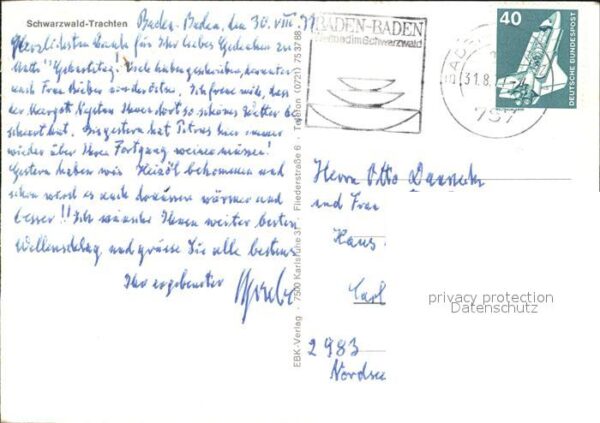 Schwarzwald-Trachten
Baden-Baden, den 30. VIII.
Herzlichsten Dank für Ihr liebes Gedenken zu
Geburtstag. Viele haben geschrieben, darunter
nach Frau Bieber Ich freue mich, dass
der Herrgott so schönes Wetter be
schert hat. Bis gestern hat Petrus hier immer
wieder über Ihren Fortgang weinen müssen!
Gestern haben wir Heizöl bekommen und
schon ward es auch draussen wärmer und
besser!! Ich wünsche Ihnen weiter besten
Wellenschlag und grüsse Sie alle bestens
Ihr ergebenster
EBK-Verlag · 7500 Karlsruhe 31 · Fliederstraße 6 · Telefon (0721) 75 37 88
BADEN-BADEN
im Schwarzwald
31.8.
757
40
DEUTSCHE BUNDESPOST
Herrn Otto
und Frau
Haus
2983
Nordsee
privacy protection
Datenschutz